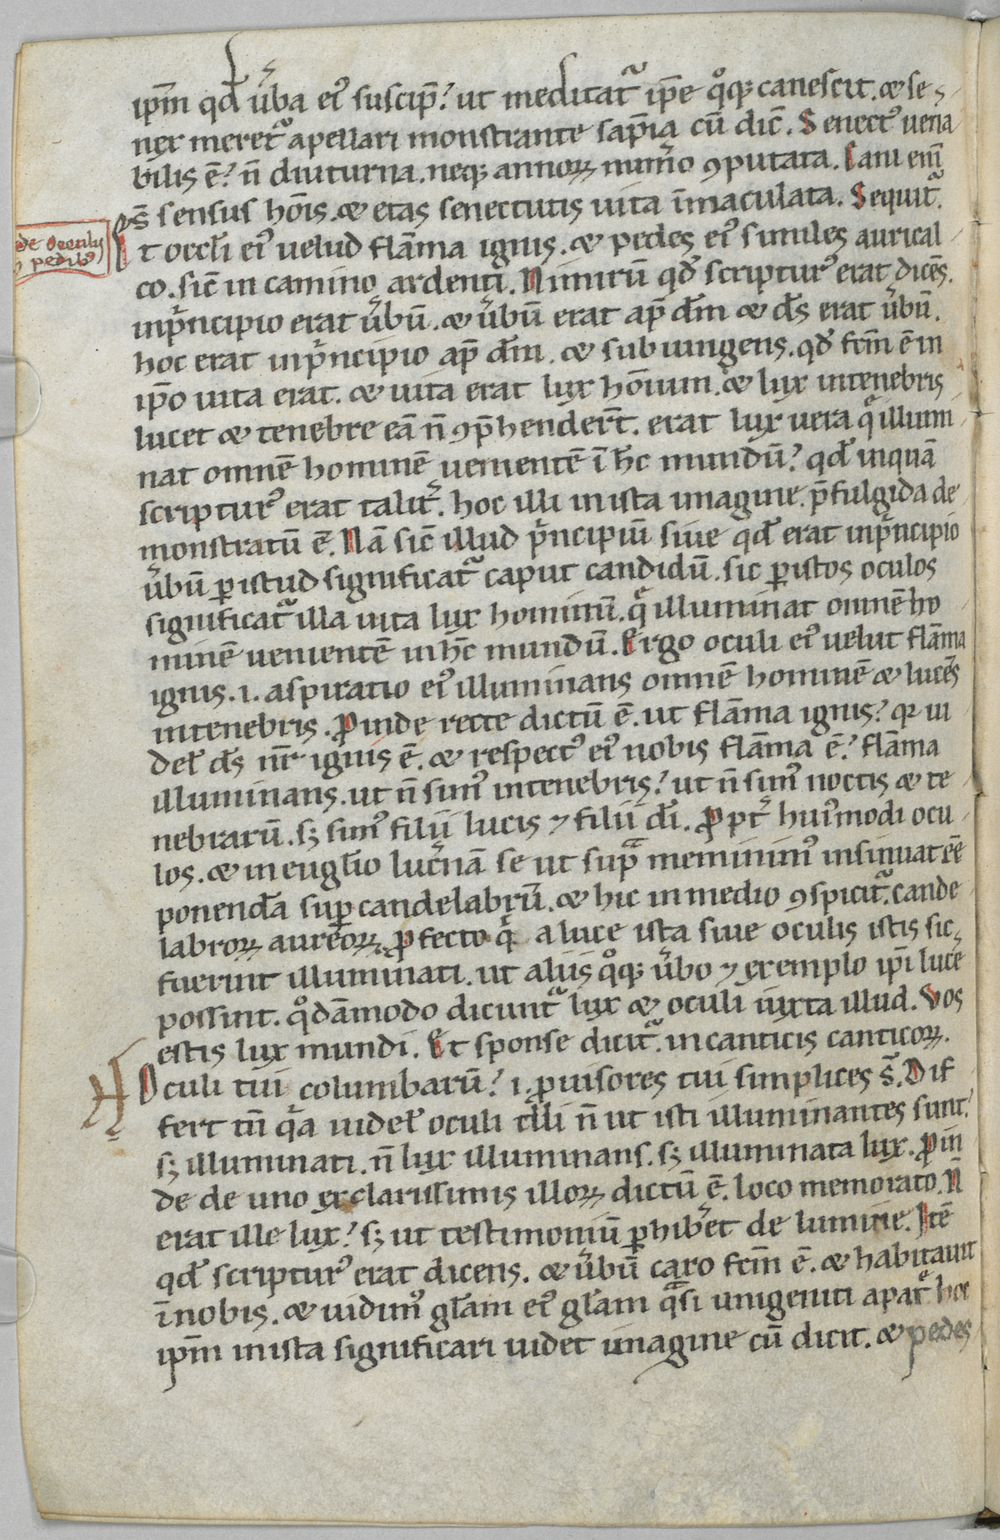 ipm̄ qđ ūba ei᷒ suscip̄? ut meditat᷑ ip̄e q°q; canescit. & se
nex meret᷑ apellari monstrante sap̄ia cū dic̄. Senect᷒ uena
bilis ē? n̄ diuturna. neq; annoꝝ num̄o ꝯputata. Cani eni᷑
s̄ sensus hōis. & etas senectutis uita īmaculata. Sequit᷑.
de oculis
& pedib᷒
Et occl̄i ei᷒ uelud flāma ignis. & pedes ei᷒ similes aurical
co. sic̄ in camino ardenti. Nimirū qđ scriptur᷒ erat dicēs.
inp͛ncipio erat ūbū. & ūbū erat ap̄ dm̄ & ds̄ erat ūbū.
hoc erat inp͛ncipio ap̄ dm̄. & subiungens. qđ fcm̄ ē in
ip̄o uita erat. & uita erat lux hōinum. & lux intenebris
lucet & tenebre eā n̄ ꝯp̄henderūt. erat lux uera q̄ illumi
nat omnē hominē uenientē ī hc̄ mundū? qđ inquā
scriptur᷒ erat talit̄. hoc illi in ista imagine. p̄fulgida de
monstratū ē. Nā sic̄ illud p͛ncipium siue qđ erat inp͛ncipio
ūbū ꝑ istud significat᷑ caput candidū. sic ꝑ istos oculos
significat᷑ illa uita lux hominū. q̄ illuminat omnē ho
minē uenientē in hc̄ mundū. Ergo oculi ei᷒ uelut flāma
ignis. i. aspiratio ei᷒ illuminans omnē hominē & lucēs
intenebris. Proinde recte dictū ē. ut flāma ignis? qꝛ ui
delꝫ ds̄ nr̄ ignis ē. & respect᷒ ei᷒ nobis flāma ē? flāma
illuminans. ut n̄ sim᷒ intenebris? ut n̄ sim᷒ noctis & te
nebrarū. sꝫ sim᷒ filii lucis ⁊ filii dī. Propt̄ hui᷒modi ocu
los. & in euglīo luc̄nā se ut supᷓ meminim᷒ insinuat eē
ponendā suꝑ candelabrū. & hic in medio ꝯspicit᷑. cande
labroꝝ aureoꝝ ꝓfecto q͛ a luce ista siue oculis istis sic
fuerint illuminati. ut aliis q°q; ūbo ⁊ exemplo ip̄i lucē
possint. q°dāmodo dicunt᷑ lux & oculi iuxta illud. Vos
estis lux mundi. Et sponse dicit᷑. in canticis canticoꝝ.
Oculi tui columbarū? i. ꝓuisores tui simplices s̄. Dif
fert tn̄ q͛a uidelꝫ oculi illi n̄ ut isti illuminantes sunt?
sꝫ illuminati. n̄ lux illuminans. sꝫ illuminata lux. Proin
de de uno ex clarissimis illoꝝ dictū ē. loco memorato. N̄
erat ille lux? sꝫ ut testimoniū ꝑhib̄et de lumine. Itē
qđ scriptur᷒ erat dicens. & ūbū caro fcm̄ ē. & habitauit
ī nobis. & uidim᷒ glīam ei᷒ glīam qᷓsi unigeniti apat͛ hoc
ipm̄ in ista significari uidet imagine cū dicit. & pedes